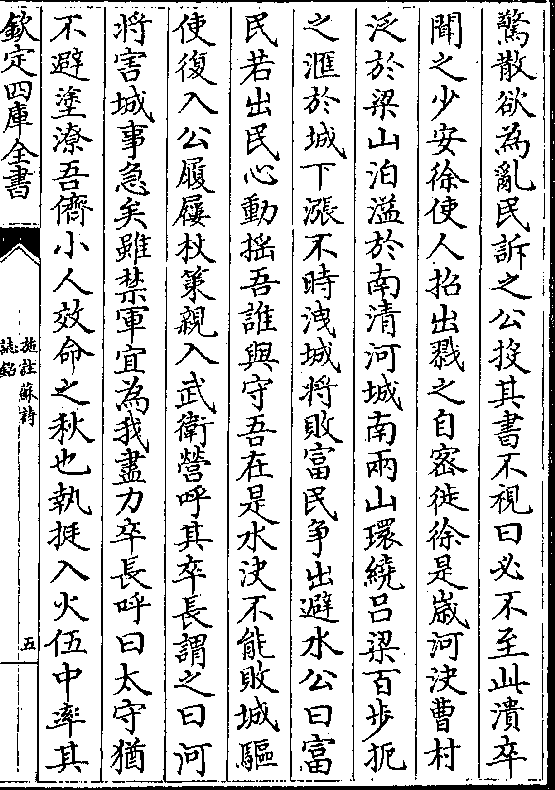 驚散欲為亂民訴之公投其書不視曰必不至此潰卒
聞之少安徐使人招出戮之自密徙徐是嵗河決曹村
泛於梁山泊溢於南清河城南兩山環繞吕梁百歩扼
之滙於城下漲不時洩城将敗富民爭出避水公曰富
民若出民心動揺吾誰與守吾在是水決不能敗城驅
使復入公履屨杖䇿親入武衛營呼其卒長謂之曰河
将害城事急矣雖禁軍宜為我盡力卒長呼曰太守猶
不避塗潦吾儕小人效命之秋也執挺入火伍中率其
欽定四庫全書
施註蘇詩
誌銘
五